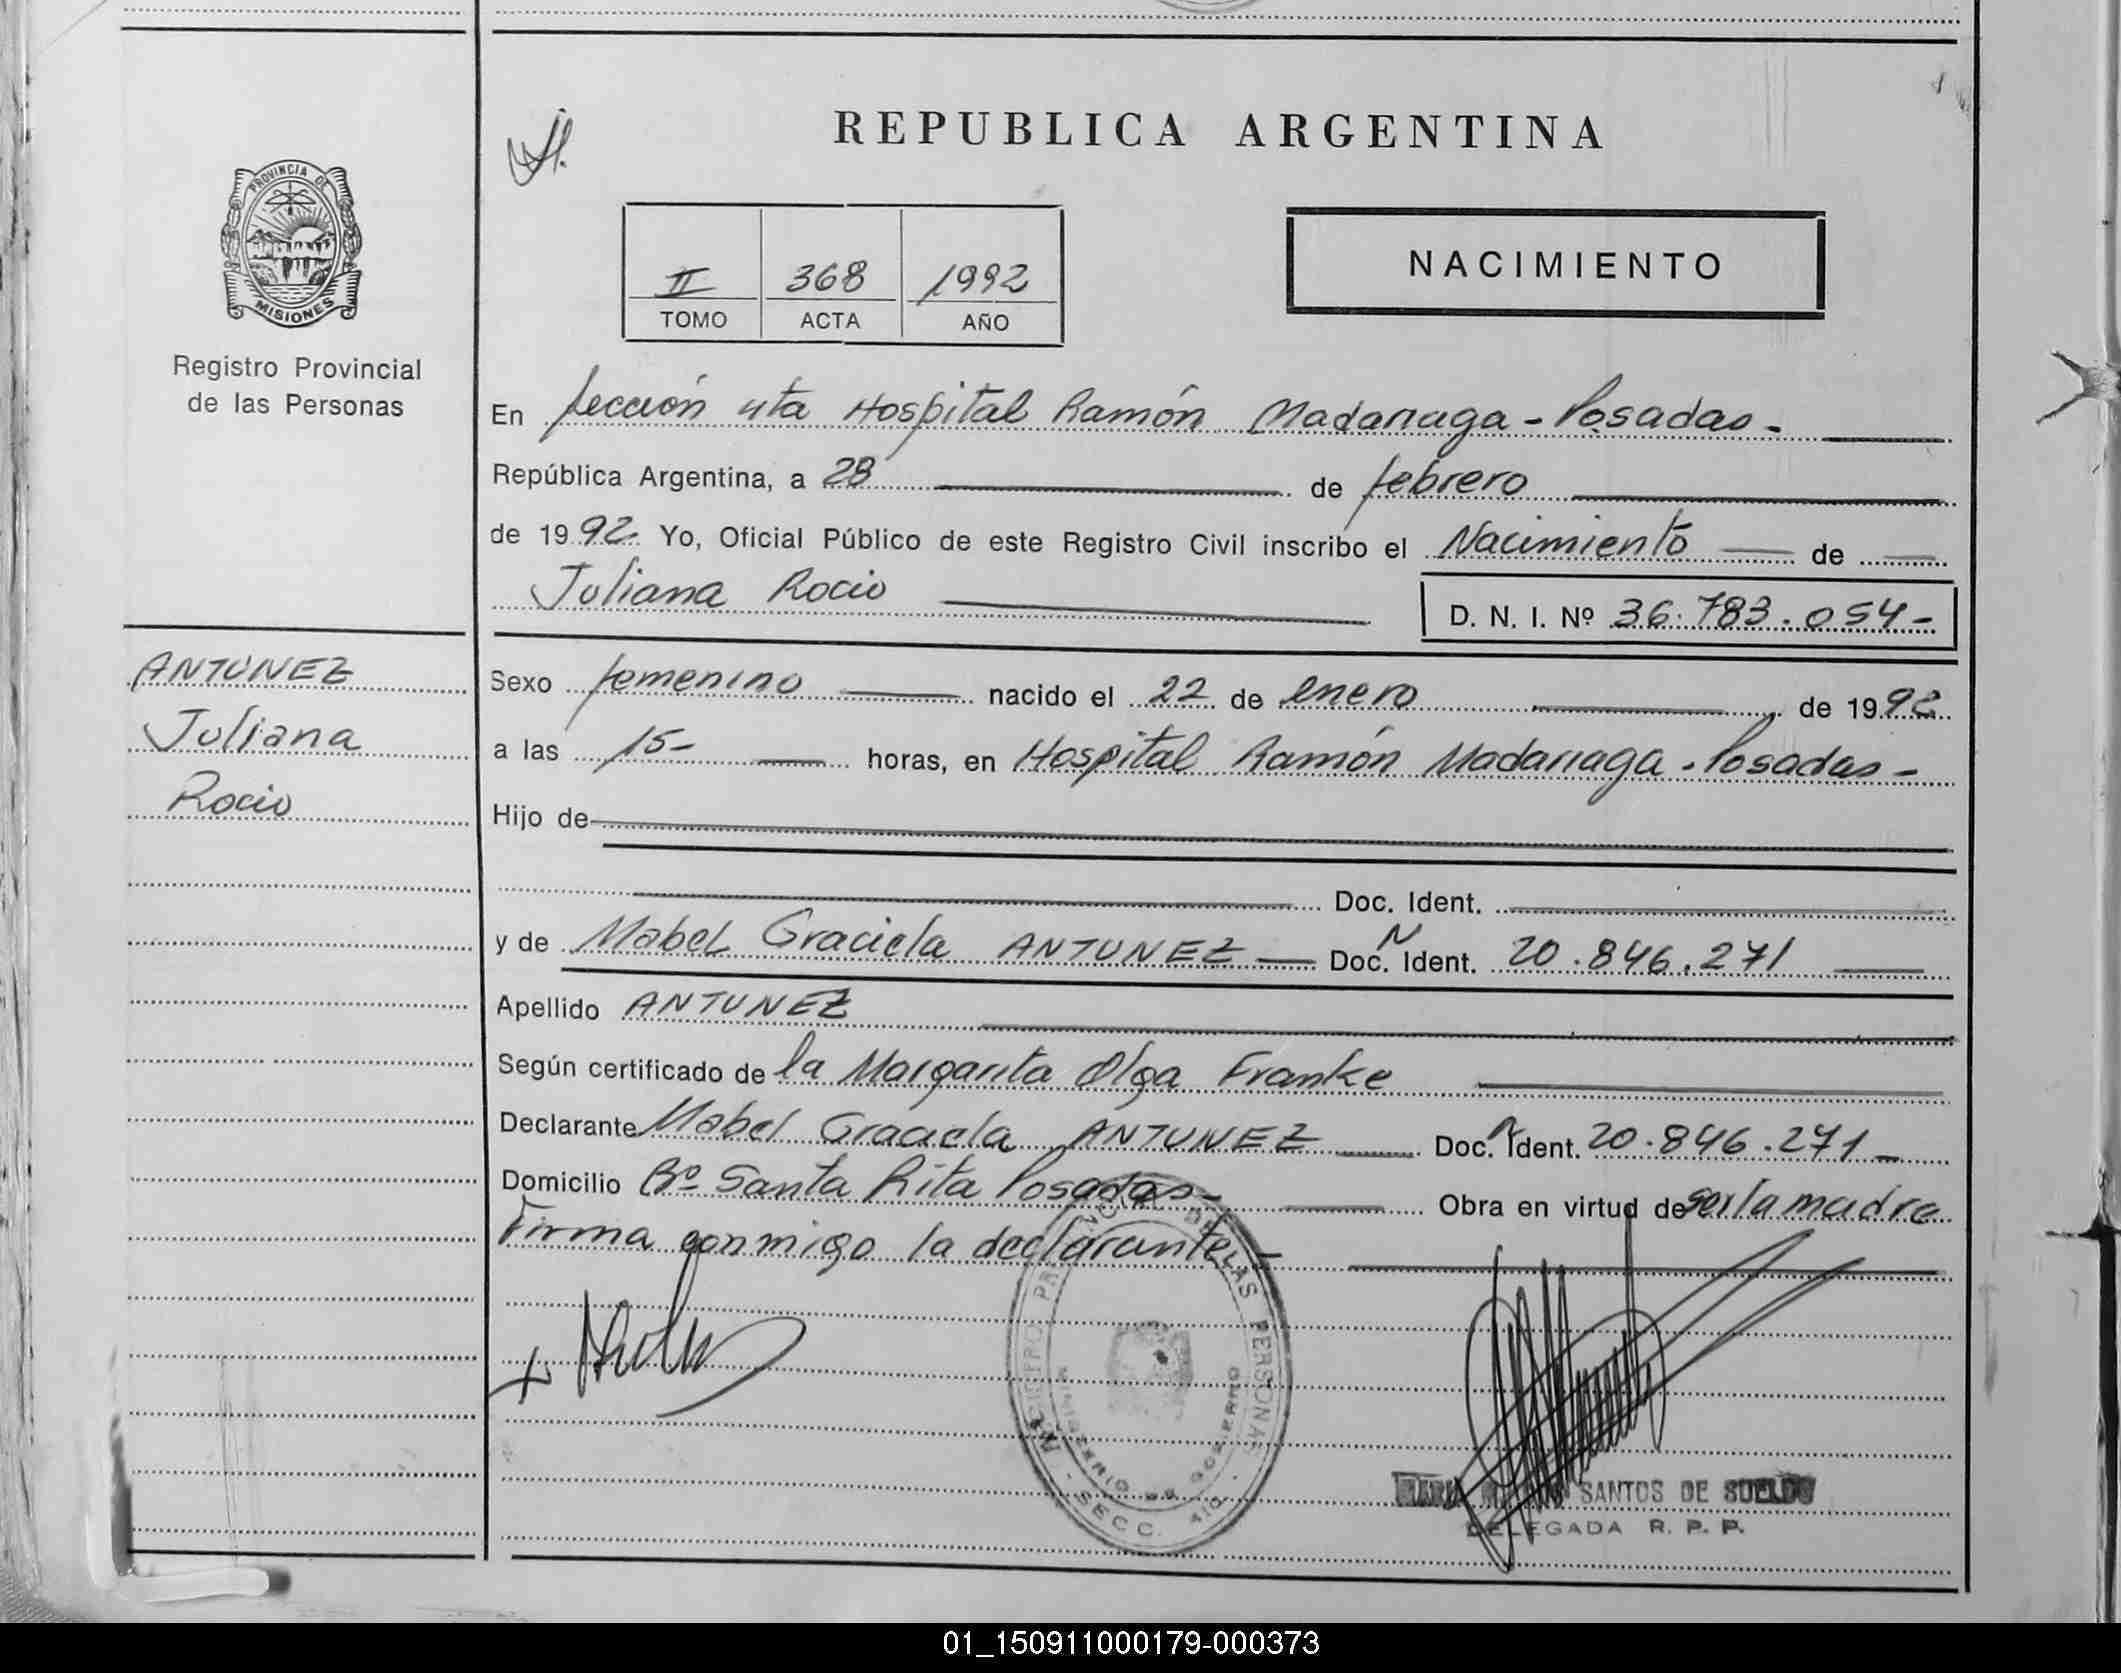 REPUBLICA ARGENTINA
PROVINCIA DE
MISIONES
Registro Provincial
de las Personas
II 368 1992
TOMO ACTA AÑO
NACIMIENTO
En Sección 4ta Hospital Ramón Madariaga - Posadas -
República Argentina, a 28 de febrero
de 1992 Yo, Oficial Público de este Registro Civil inscribo el Nacimiento de
Juliana Rocio D. N. I. Nº 36.783.054-
ANTUNEZ
Juliana
Rocio
Sexo femenino nacido el 22 de enero de 1992
a las 15- horas, en Hospital Ramón Madariaga - Posadas -
Hijo de
Doc. Ident.
y de Mabel Graciela ANTUNEZ Doc. N Ident. 20.846.271
Apellido ANTUNEZ
Según certificado de la Margarita Olga Franke
Declarante Mabel Graciela ANTUNEZ Doc. Ident. 20.846.271-
Domicilio Bº Santa Rita Posadas - Obra en virtud de ser la madre
Firma conmigo la declarante -
REGISTRO PROVINCIAL DE LAS PERSONAS
MINISTERIO DE GOBIERNO
SECC. 4ta
SANTOS DE SUELDO
DELEGADA R. P. P.
01_150911000179-000373